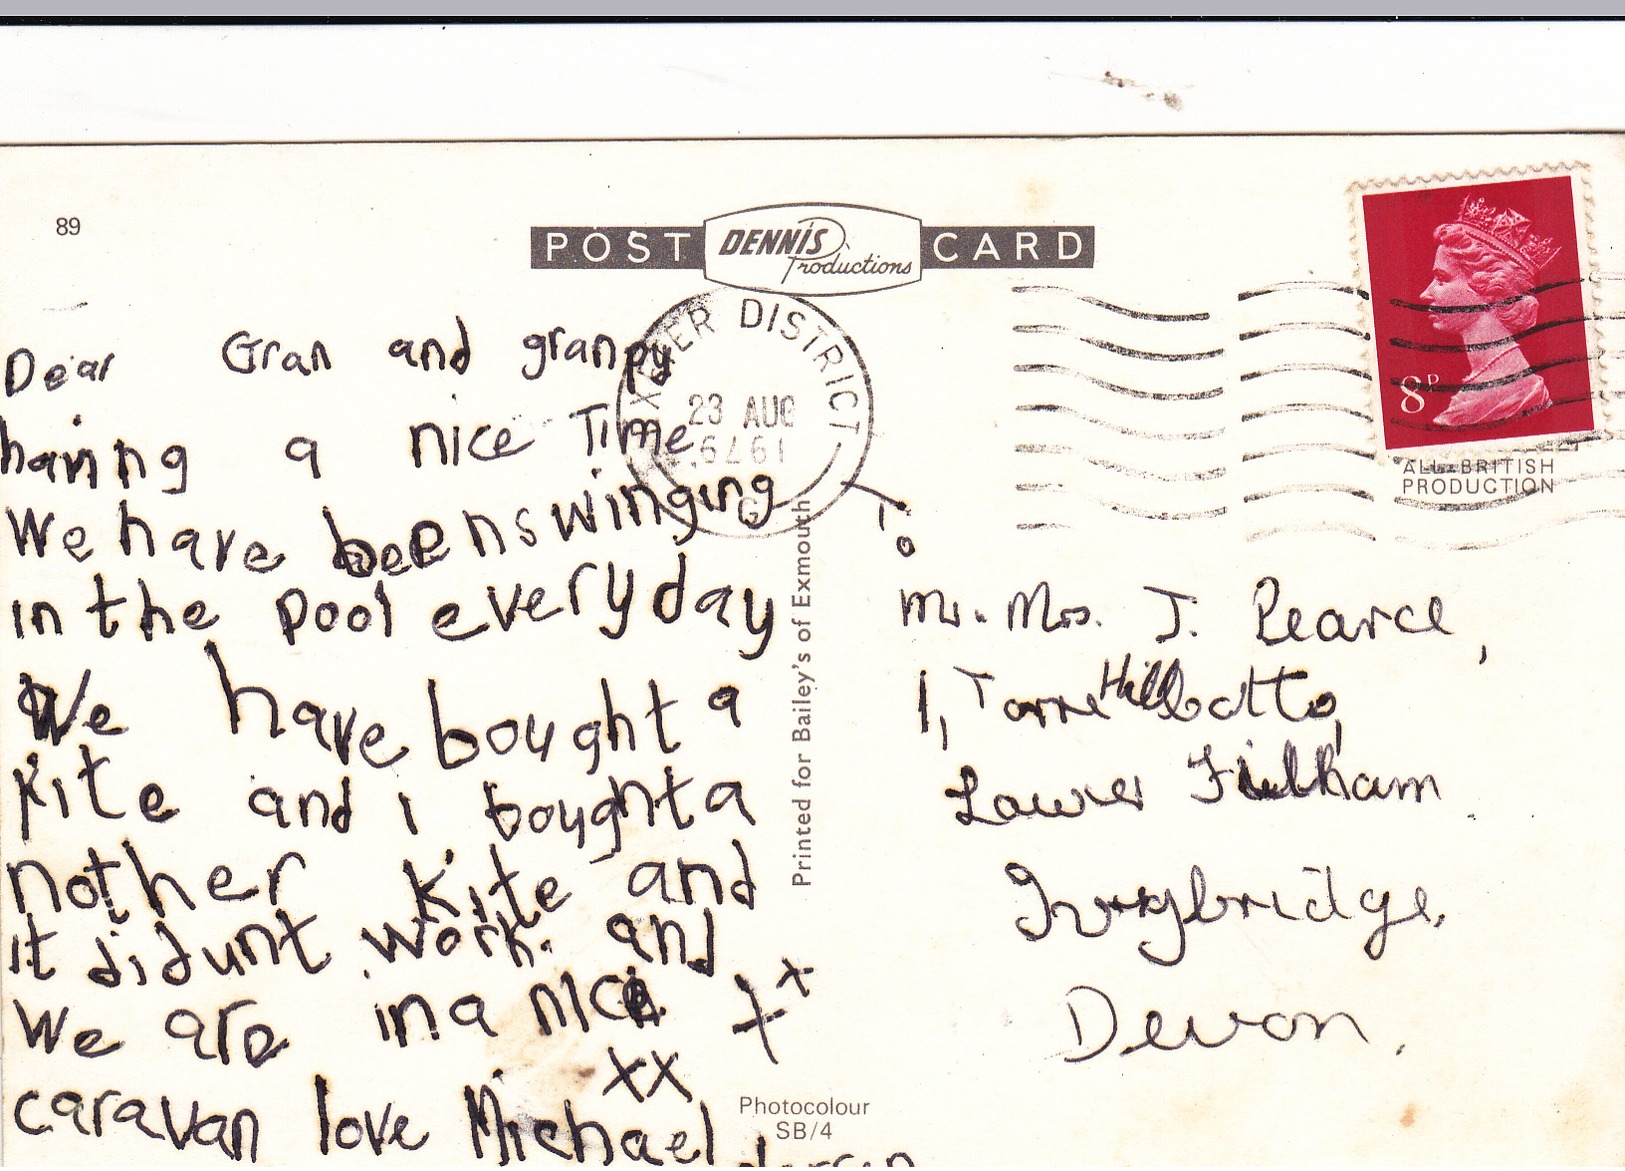 89
POST DENNIS Productions CARD
EXETER DISTRICT
23 AUG
1976
8P
ALL-BRITISH
PRODUCTION
Dear Gran and granpy
having a nice Time
We have been swinging
in the pool everyday
We have bought a
kite and i bought a
nother kite and
it didunt work. and
We are in a nice
caravan love Michael
xx
xx
Printed for Bailey's of Exmouth
Photocolour
SB/4
To
Mr. Mrs. J. Pearce,
1, Torre Hill
Lower
Ivybridge,
Devon.